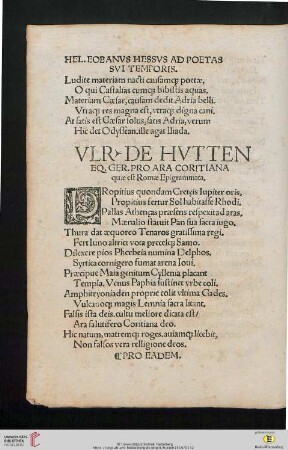 HEL. EOBANVS HESSVS AD POETAS
SVI TEMPORIS.
Ludite materiam nacti causamq; poetæ,
O qui Castalias cumq; bibistis aquas.
Materiam Cæsar, causam dedit Adria belli.
Vtraq; res magna est, vtraq; digna cani.
At satis est Cæsar solus, satis Adria, verum
Hic det Odysseam, ille agat Iliada.
VLR. DE HVTTEN
EQ. GER. PRO ARA CORITIANA
quæ est Romæ Epigramma.
PRopitius quondam Creteis Iupiter oris,
Propitius fertur Sol habitasse Rhodi.
Pallas Athenæas præsens respexit ad aras,
Mænalio statuit Pan sua sacra iugo.
Thura dat æquoreo Tenaros gratissima regi.
Fert Iuno altrici vota precesq; Samo.
Dilexere pios Phœbeia numina Delphos,
Syrtica cornigero fumat arena Ioui,
Præcipue Maia genitum Cyllenia placant
Templa. Venus Paphia sustinet vrbe coli.
Amphitryoniaden proprie colit vltima Gades.
Vulcanoq; magis Lemnia sacra litant.
Falsis ista deis. cultu meliore dicata est
Ara salutifero Coritiana deo.
Hic natum, matremq; roges, auiamq; licebit,
Non falsos vera relligione deos.
¶ PRO EADEM.